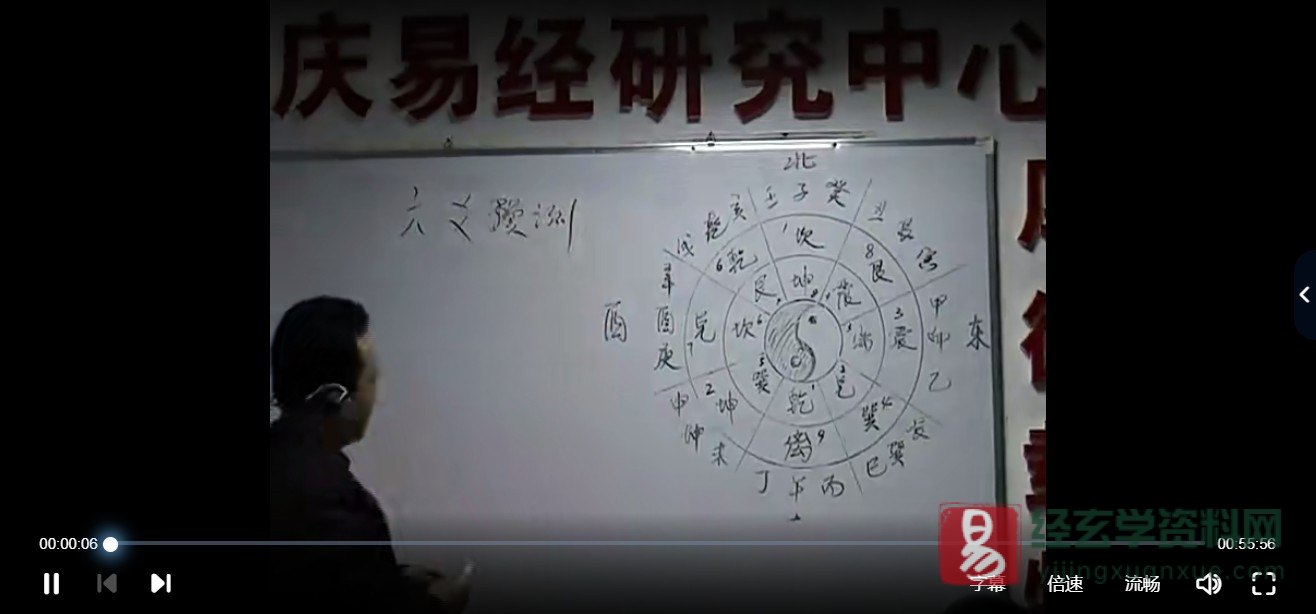 庆易经研究中心
北
六爻预测
壬 子 癸
丑 艮 寅
戌 乾 亥
1 坎
6 乾
8 艮
坤 8
艮
震
辛
酉 酉
庚
7 兑
坎 6
3 震
甲
卯
乙
东
乾 1
兑
2 坤
离 9
4
申 坤 未
辰
巳
丁 午 丙
易
经玄学资料网
yijingxuanxue.com
00:00:06
00:55:56
字幕
倍速
流畅